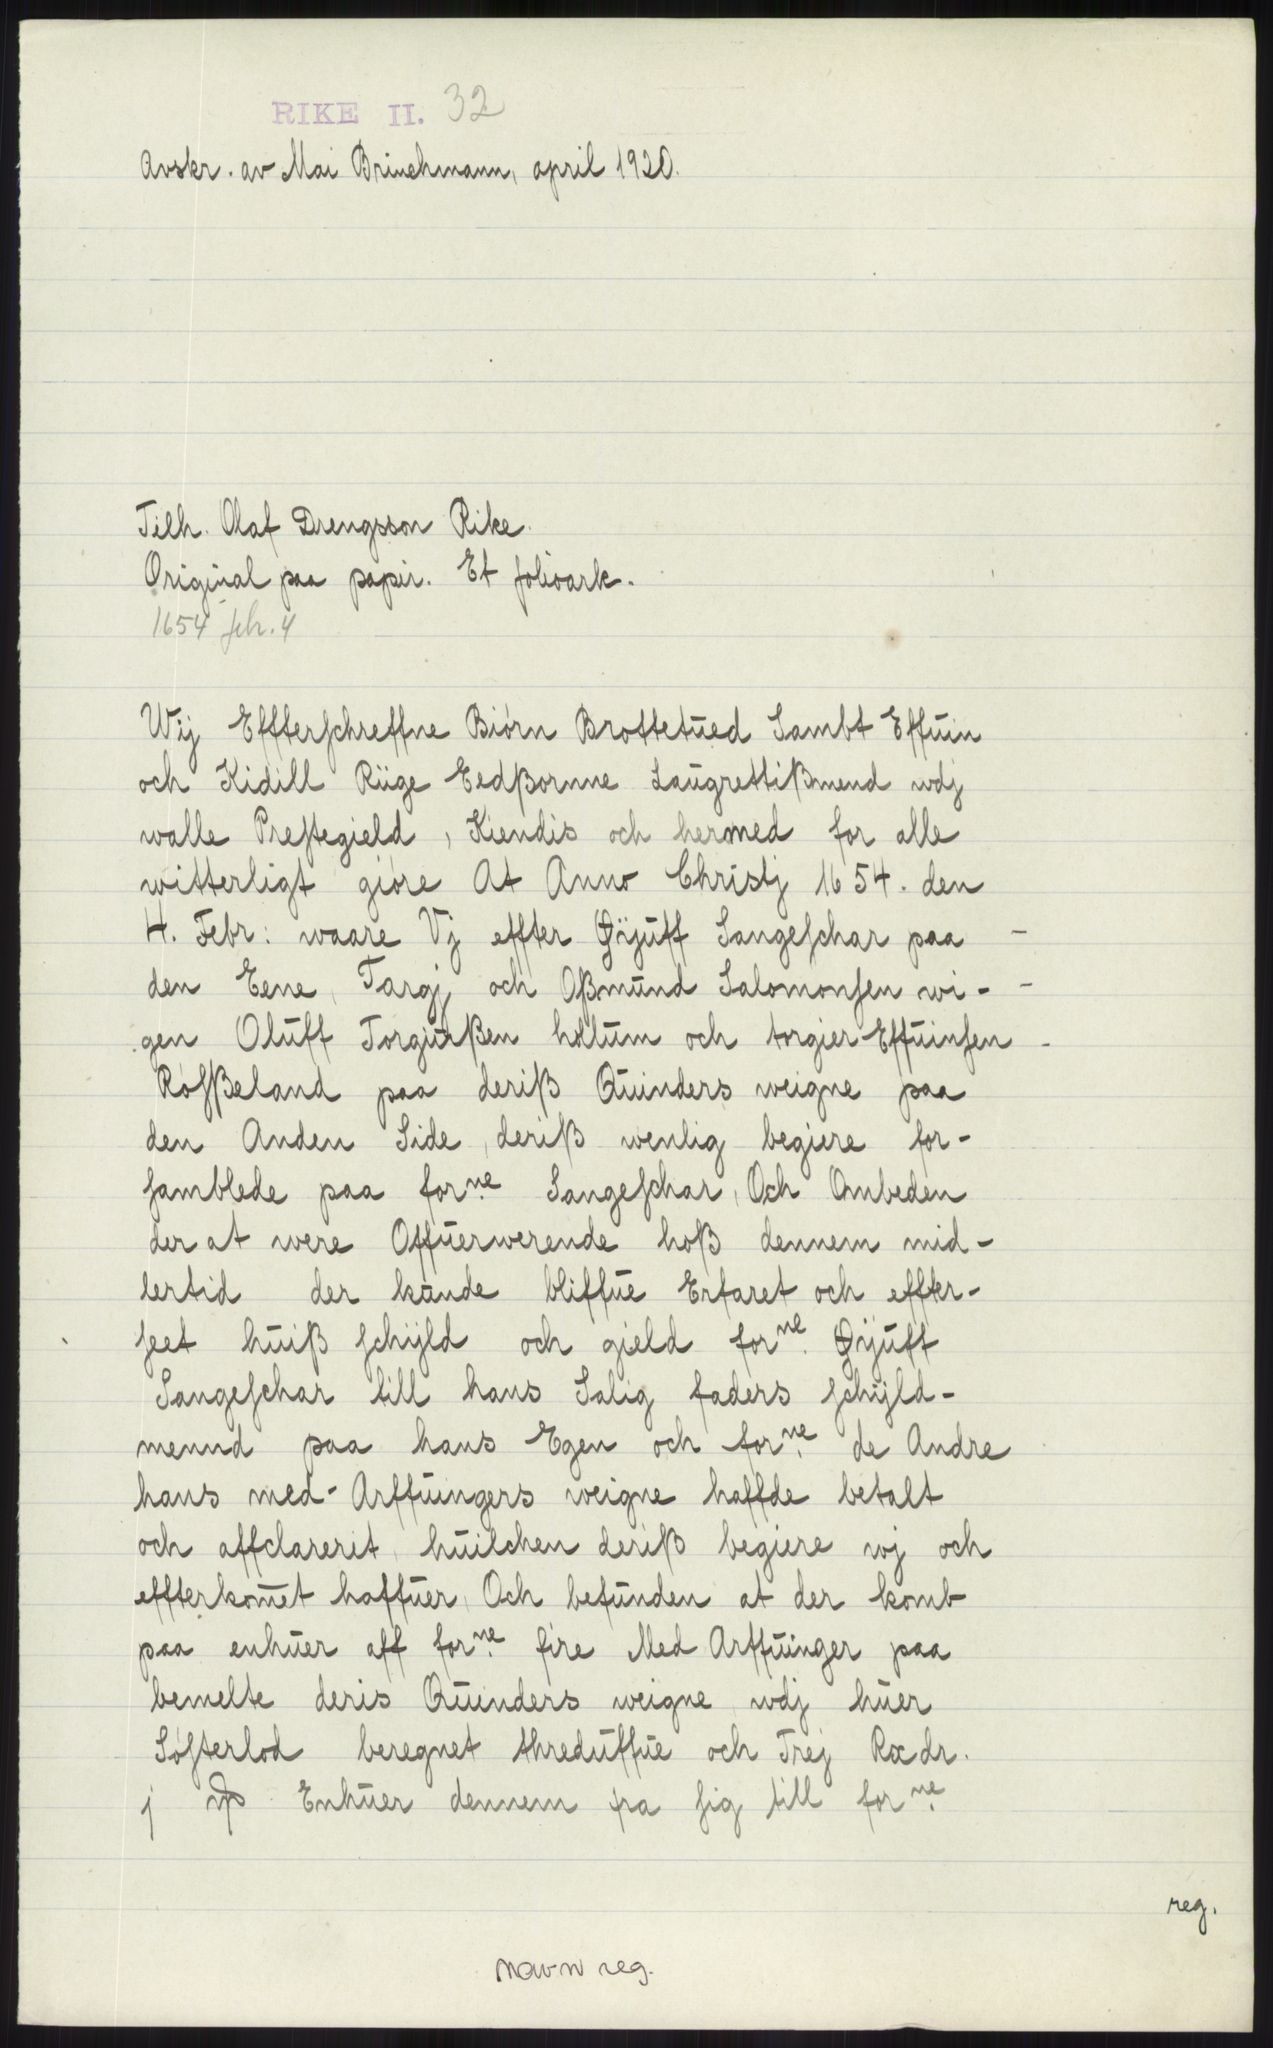 RIKE II. 32
Avskr. av Mai Brinchmann, april 1920.
Tilh. Olaf Drengsson Rike.
Original paa papir. Et folioark.
1654 feb. 4
Wij Effterschreffne Biörn Brottetued Sambt Effuin
och Kidill Rüge Eedßornne Laugrettißmend wdj
walle Prestegield, Kiendis och hermed for alle
witterligt giöre At Anno Christj 1654. den
4. Febr: waare Vj effter Gÿuff Langeschar paa -
den Eene, Targj och Oßmund Salomonsen wi- -
gen Oluff Torgurßen hollum och torgier Effuinsen -
Rosßeland paa deriß Quinders weigne paa
den Anden Side, deriß wenlig begiere for-
samblede paa forne. Langeschar, Och Ombeden
der at were Offuerwerende hoß dennem mid-
lertid der kunde bliffue Erfaret och effter-
seet huiß schijld och gield forne. Gÿuff
Langeschar till hans Salig faders schijld-
mennd paa hans Egen och forne. de Andre
hans med- Arffuingers weigne haffde betalt
och affclarerit, huilchen deriß begiere wj och
effterkom̅et haffuer, Och befunden at der komb
paa enhuer aff forne. fire Med Arffuinger paa
bemelte deris Quinders weigne wdj huer
Sösterlod beregnet threduffue och Trej Rxdr.
j Enhuer dennem fra sig till forne.
reg.
navn reg.